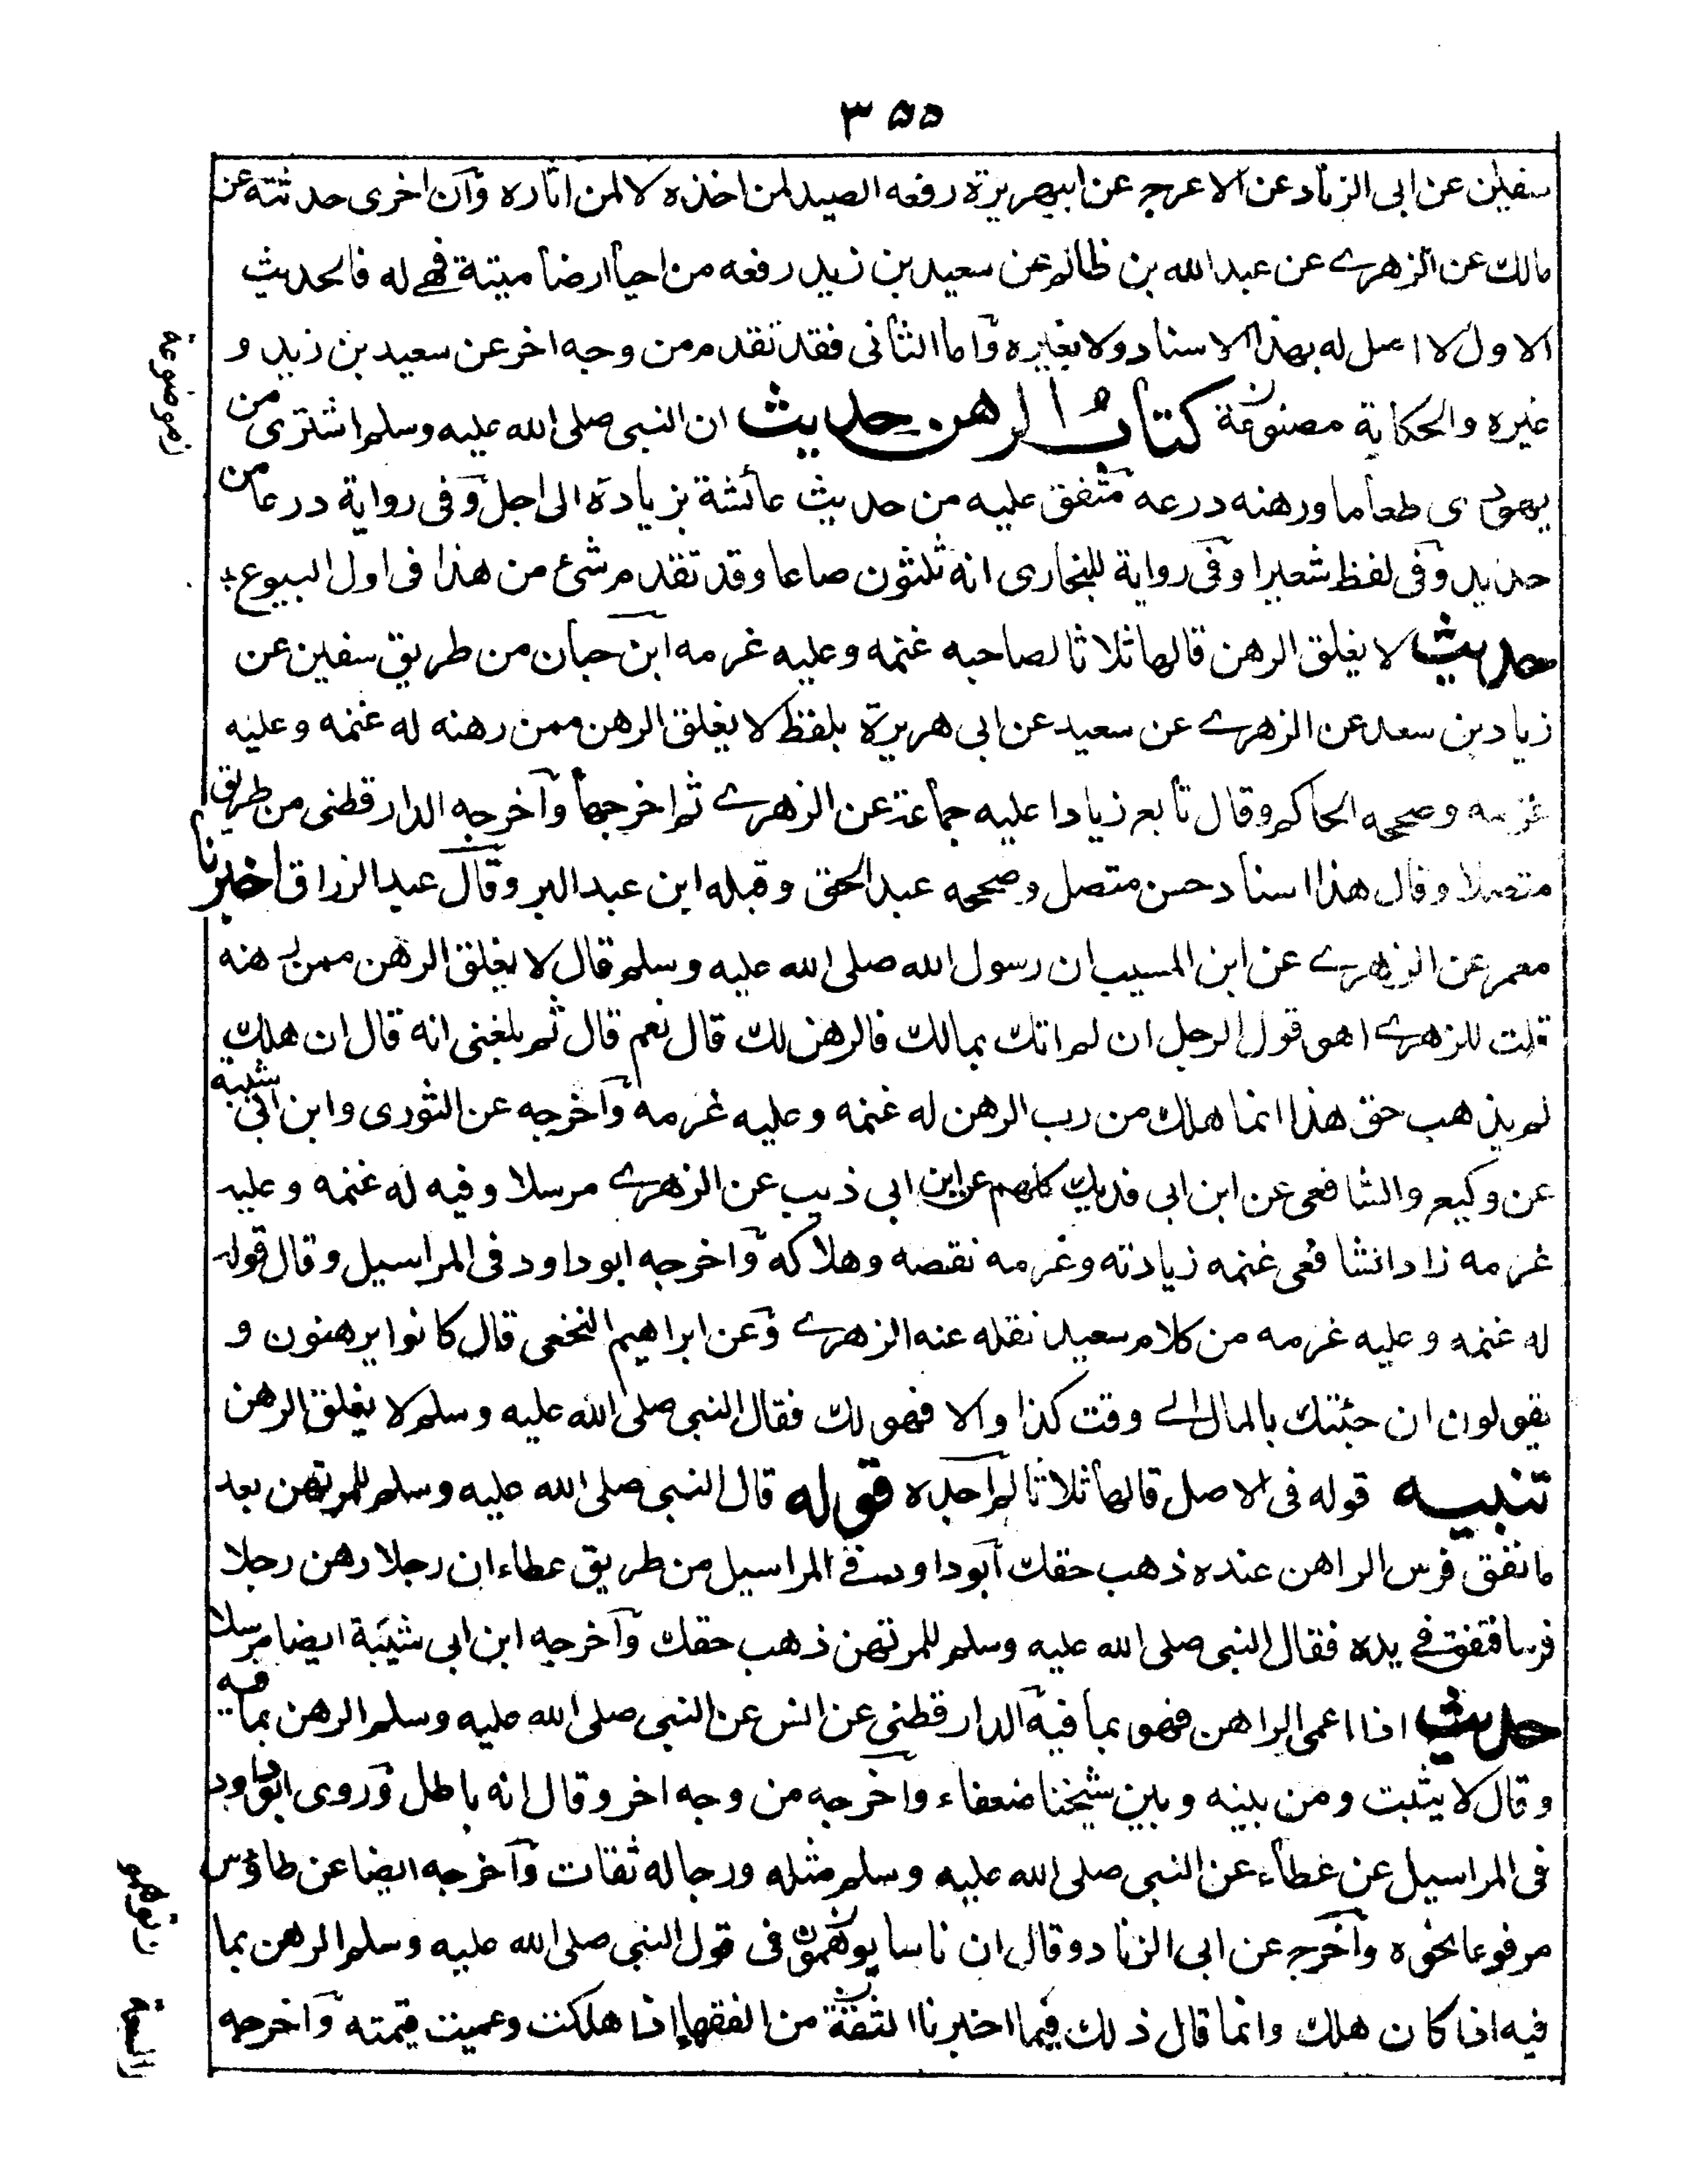 ٣٥٥
سفين عن ابى الزناد عن الاعرج عن ابيهريرة رفعه الصيد لمن اخذه لا لمن اثاره وآن اخرى حدثته عن
مالك عن الزهرے عن عبد الله بن ظالم عن سعيد بن زيد رفعه من احيا ارضا ميتة فهے له فالحديث
الاول لا اصل له بهذا الاسناد ولا بغيره وآما الثانى فقد تقدم من وجه اخر عن سعيد بن زيد و
غيره والحكاية مصنوعة كتاب الرهن حديث ان النبى صلى الله عليه وسلم اشترى من
ن موضوعة
يهودى طعاما ورهنه درعه متفق عليه من حديث عائشة بزيادة الى اجل وفى رواية درعا من
حديد وفى لفظ شعيرا وفى رواية للبخارى انه ثلثون صاعا وقد تقدم شئ من هذا فى اول البيوع
حديث لا يغلق الرهن قالها ثلاثا لصاحبه غنمه وعليه غرمه ابن حبان من طريق سفين عن
زياد بن سعد عن الزهرے عن سعيد عن ابى هريرة بلفظ لا يغلق الرهن ممن رهنه له غنمه وعليه
غرمه وصححه الحاكم وقال تابع زيادا عليه جماعة عن الزهرے ثم اخرجها وآخرجه الدارقطنى من طريق
متصلا وقال هذا اسناد حسن متصل وصححه عبد الحق وقبله ابن عبد البر وقال عبد الرزاق اخبرنا
معمر عن الزهرے عن ابن المسيب ان رسول الله صلى الله عليه وسلم قال لا يغلق الرهن ممن رهنه
قلت للزهرے اهو قول الرجل ان لم اتك بمالك فالرهن لك قال نعم قال ثم بلغنى انه قال ان هلك
لم يذهب حق هذا انما هلك من رب الرهن له غنمه وعليه غرمه وآخرجه عن الثورى وابن ابى شيبة
عن وكيع والشافعى عن ابن ابى فديك كلهم عن ابن ابى ذيب عن الزهرے مرسلا وفيه له غنمه وعليه
غرمه زاد الشافعى غنمه زيادته وغرمه نقصه وهلاكه وآخرجه ابو داود فى المراسيل وقال قوله
له غنمه وعليه غرمه من كلام سعيد نقله عنه الزهرے وعن ابراهيم النخعى قال كانوا يرهنون و
يقولون ان جئتك بالمال الے وقت كذا والا فهو لك فقال النبى صلى الله عليه وسلم لا يغلق الرهن
تنبيه قوله فى الاصل قالها ثلاثا لم آجده قوله قال النبى صلى الله عليه وسلم للمرتهن بعد
ما نفق فرس الراهن عنده ذهب حقك آبو داود فے المراسيل من طريق عطاء ان رجلا رهن رجلا
فرسا فنفق فے يده فقال النبى صلى الله عليه وسلم للمرتهن ذهب حقك وآخرجه ابن ابى شيبة ايضا مرسلا
حديث اذا اعمى الراهن فهو بما فيه الدارقطنى عن انس عن النبى صلى الله عليه وسلم الرهن بما فيه
وقال لا يثبت ومن بينه وبين شيخنا ضعفاء وآخرجه من وجه اخر وقال انه باطل وروى ابو داود
فى المراسيل عن عطاء عن النبى صلى الله عليه وسلم مثله ورجاله ثقات وآخرجه ايضا عن طاؤس
مرفوعا نحوه وآخرج عن ابى الزناد وقال ان ناسا يوهمون فى قول النبى صلى الله عليه وسلم الرهن بما
فيه اذا كان هلك وانما قال ذلك فيما اخبرنا الثقة من الفقهاء اذا هلكت وعميت قيمته وآخرجه